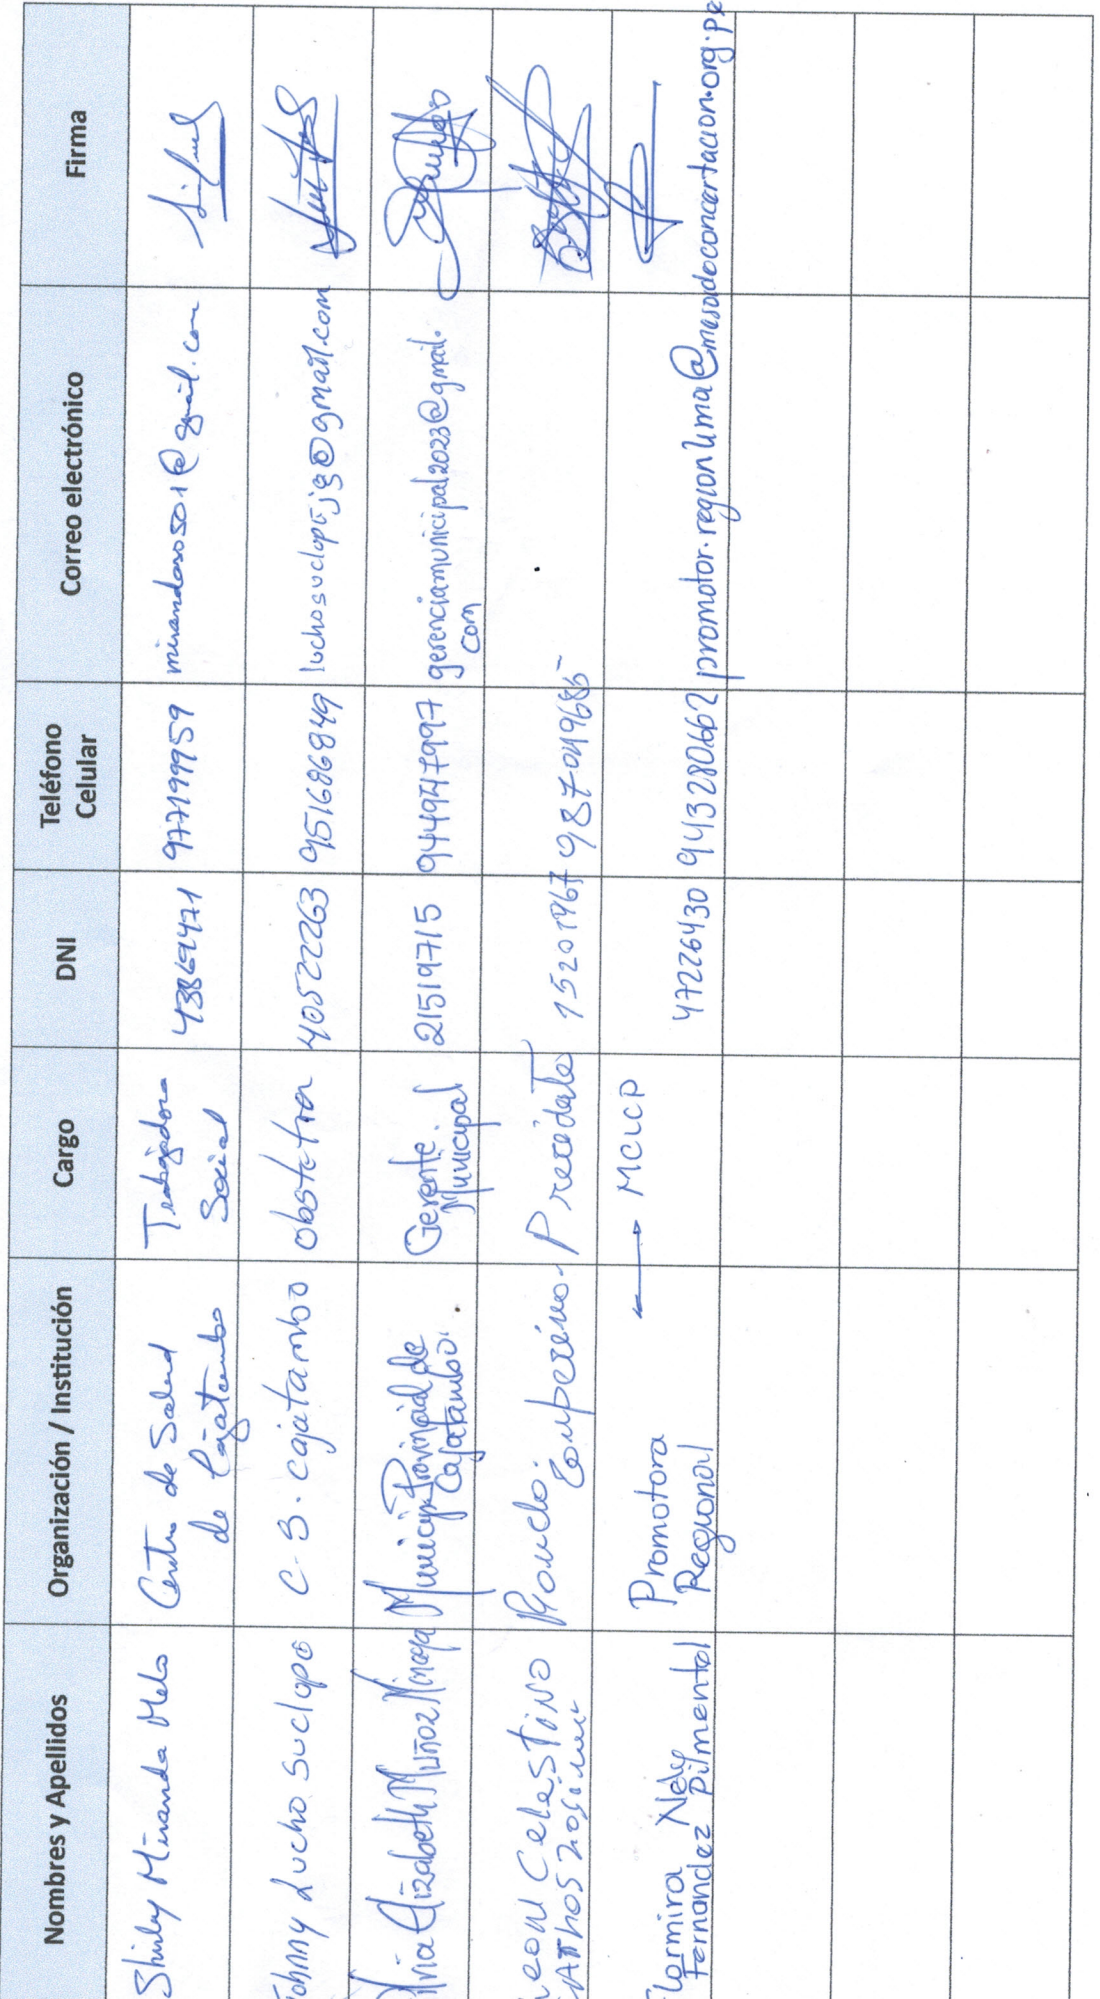 Nombres y Apellidos Organización / Institución Cargo DNI Teléfono Celular Correo electrónico Firma
Shirley Miranda Melo Centro de Salud de Cajatambo Trabajadora Social 977199959
Johnny Lucho Suclope C.S. Cajatambo Obstetra 40522263 951686849 luchosuclopejg@gmail.com
Elizabeth Muñoz Minaya Municip. Provincial de Cajatambo. Gerente Municipal 21519715 944947997 gerenciamunicipal2023@gmail.com
Celestino 15201967
Flormira Nely Fernandez Pilmentel Promotora Regional MCLCP 47226430 943280662 promotor.regionlima@mesadeconcertacion.org.pe